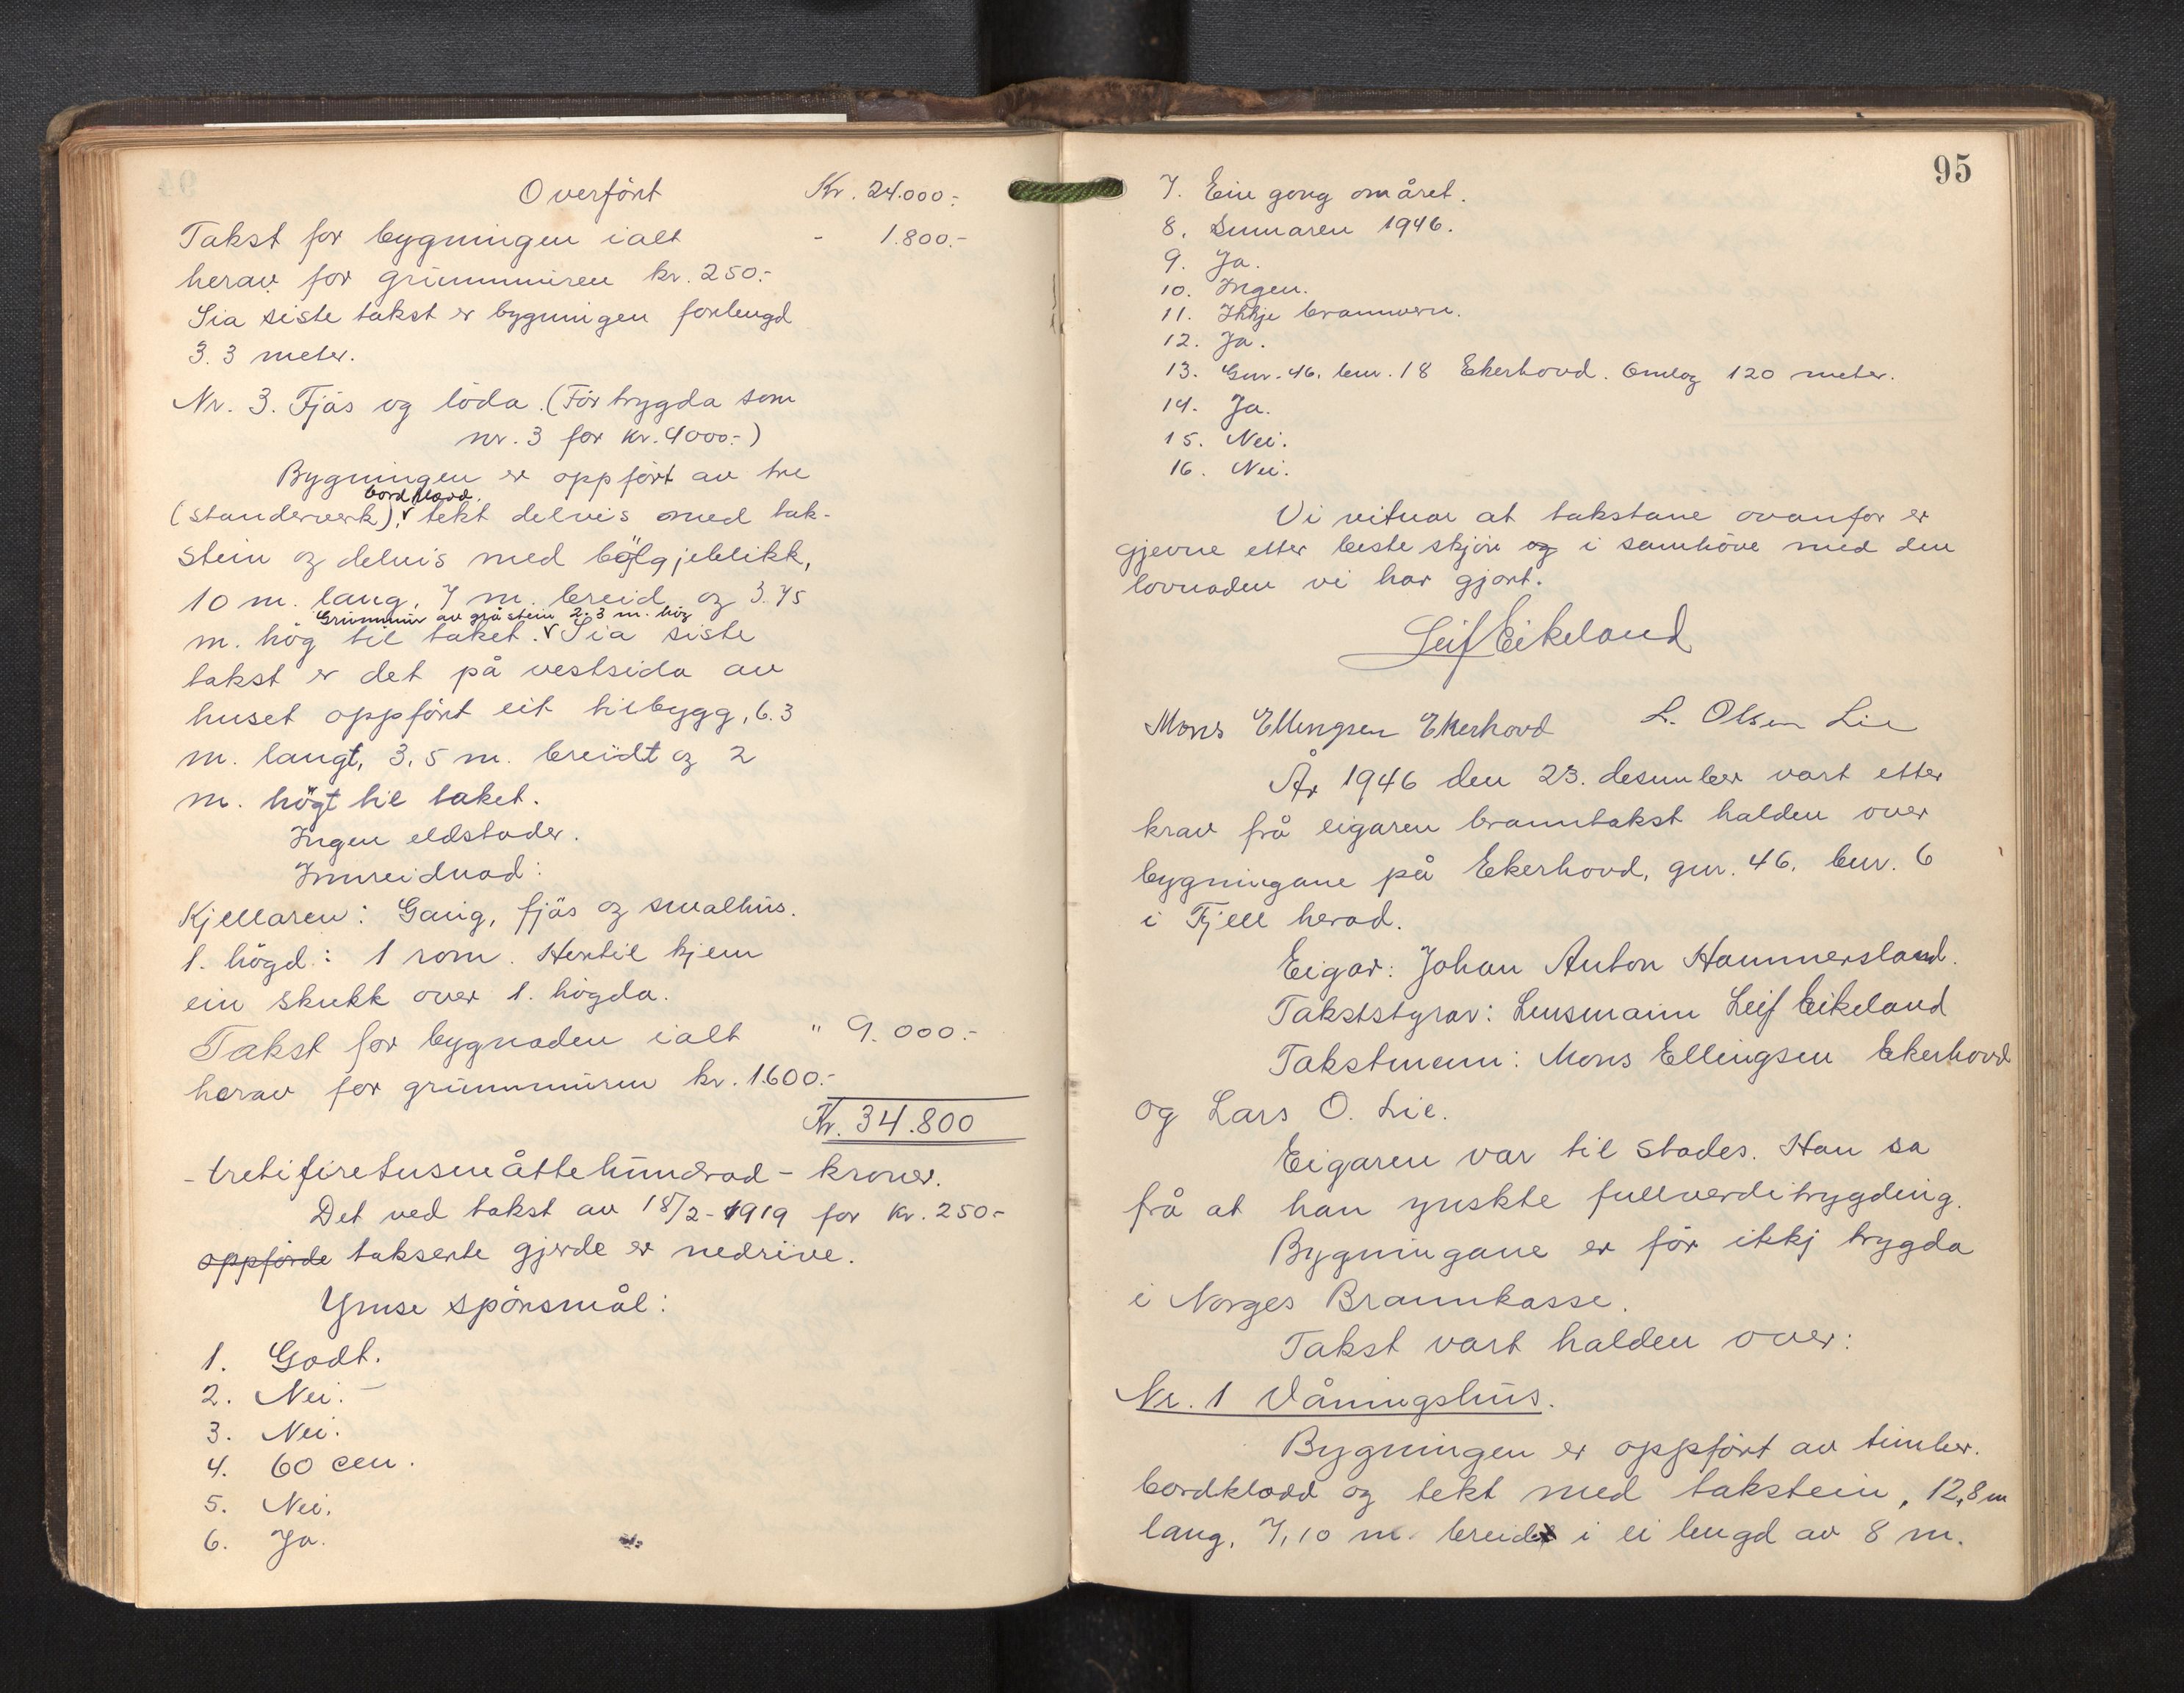 Overført Kr. 24.000.-
Takst for bygningen ialt - 1.800.-
herav for grunnmuren kr. 250.-
Sia siste takst er bygningen forlengd
3.3 meter.
Nr. 3. Fjøs og løda. (Før trygda som
nr. 3 for kr. 4000.-)
Bygningen er oppført av tre
bordkledd.
(standerverk), tekt delvis med tak-
stein og delvis med bølgjeblikk,
10 m. lang, 7 m. breid og 3.75
Grunnmur av gråstein 2.3 m. høg
m. høg til taket. Sia siste
takst er det på vestsida av
huset oppført eit tilbygg, 6.3
m. langt, 3,5 m. breidt og 2
m. høgt til taket.
Ingen eldstader.
Innreidnad:
Kjellaren: Gang, fjøs og smalhus.
1. høgd: 1 rom. Hertil kjem
ein skukk over 1. høgda.
Takst for bygnaden ialt " 9.000.-
herav for grunnmuren kr. 1600.-
Kr. 34.800
- trettifiretusenåttehundrad - kroner.
Det ved takst av 18/2-1919 for kr. 250.-
oppførde takserte gjerde er nedrive.
Ymse spörsmål:
1. Godt.
2. Nei.
3. Nei.
4. 60 cm.
5. Nei.
6. Ja.
95
7. Ein gong om året.
8. Sumaren 1946.
9. Ja.
10. Ingen.
11. Ikkje brannvern.
12. Ja.
13. Gnr. 46. bnr. 18 Ekerhovd. Omlag 120 meter.
14. Ja.
15. Nei.
16. Nei.
Vi vitnar at takstane ovanfor er
gjevne etter beste skjøn og i samhøve med den
lovnaden vi har gjort.
Leif Eikeland
Mons Ellingsen Ekerhovd L. Olsen Lie
År 1946 den 23. desember vart etter
krav frå eigaren branntakst halden over
bygningane på Ekerhovd, gnr. 46. bnr. 6
i Fjell herad.
Eigar: Johan Anton Hammersland.
Takststyrar: Lensmann Leif Eikeland
Takstmenn: Mons Ellingsen Ekerhovd
og Lars O. Lie.
Eigaren var til stades. Han sa
frå at han ynskte fullverditrygding.
Bygningane er før ikkj trygda
i Norges Brannkasse.
Takst vart halden over:
Nr. 1 Våningshus.
Bygningen er oppført av timber.
bordkledd og tekt med takstein, 12,8 m
lang, 7,10 m. breid i ei lengd av 8 m.